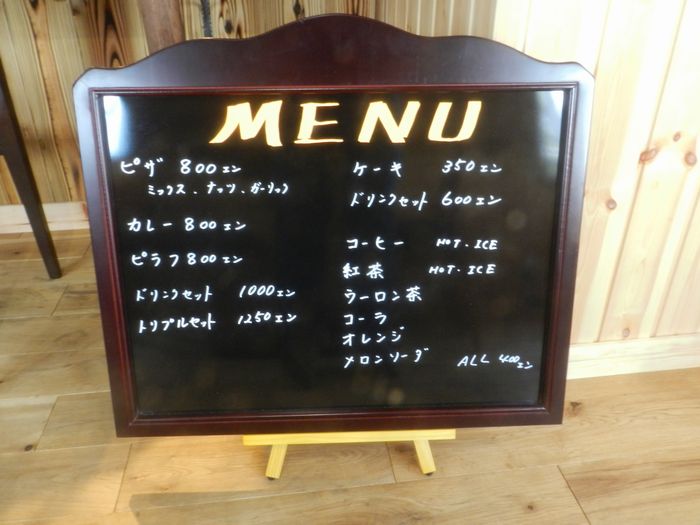 MENU
ピザ 800エン
ミックス、ナッツ、ガーリック
カレー 800エン
ピラフ 800エン
ドリンクセット 1000エン
トリプルセット 1250エン
ケーキ 350エン
ドリンクセット 600エン
コーヒー HOT・ICE
紅茶 HOT・ICE
ウーロン茶
コーラ
オレンジ
メロンソーダ ALL 400エン